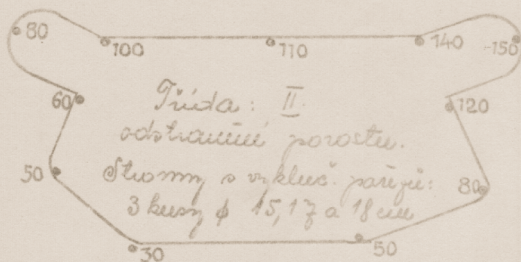 80 100 110 140 150
60 120
Třída: II.
odstranění porostu.
50 80
Stromy s vykluč. pařezů:
3 kusy φ 15, 17 a 18 cm
30 50